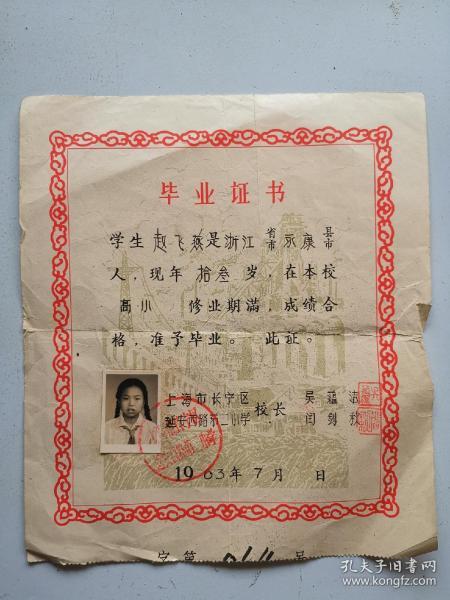 毕业证书
学生 赵飞燕是浙江 省市 永康 县市
人，现年 拾叁 岁，在本校
高小 修业期满，成绩合
格，准予毕业。 此证。
上海市长宁区
延安西路第二小学 校长
吴蕴洁
闫剑秋
1963年7月 日
字第 号
孔夫子旧书网
www.kongfz.com